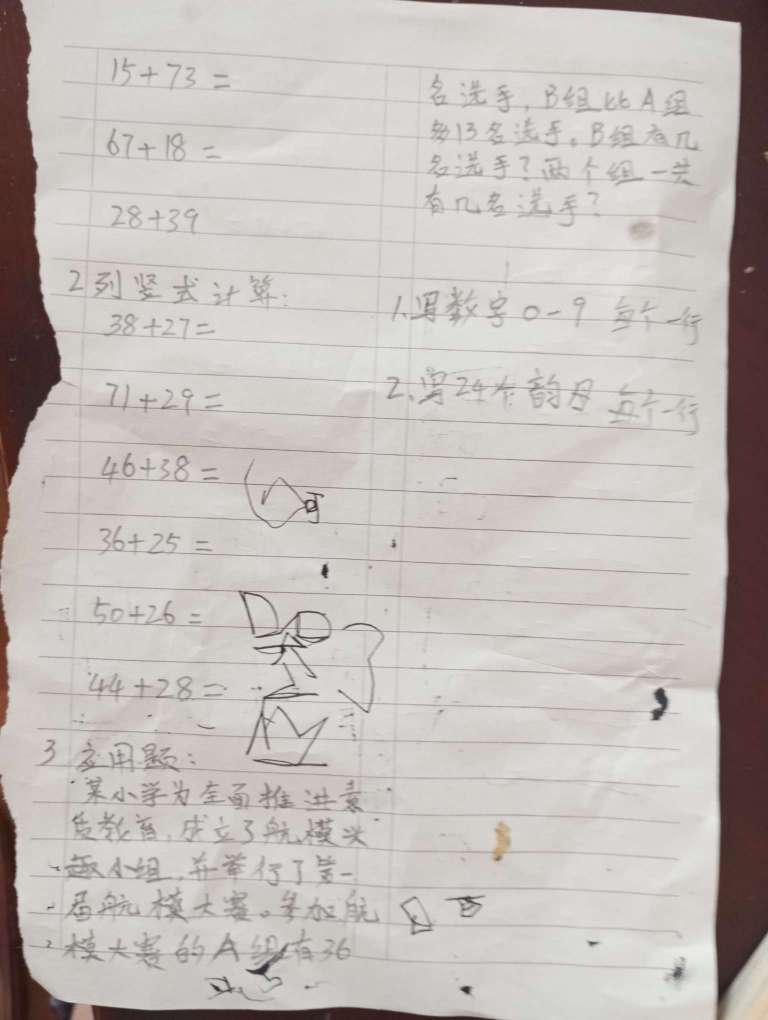 15+73=
67+18=
28+39
2列竖式计算:
38+27=
71+29=
46+38=
36+25=
50+26=
44+28=
3 应用题:
某小学为全面推进素
质教育,成立了航模兴
趣小组,并举行了第一
届航模大赛。参加航
模大赛的A组有36
名选手,B组比A组
多13名选手。B组有几
名选手?两个组一共
有几名选手?
1.写数字0-9 每个一行
2.写24个韵母 每个一行